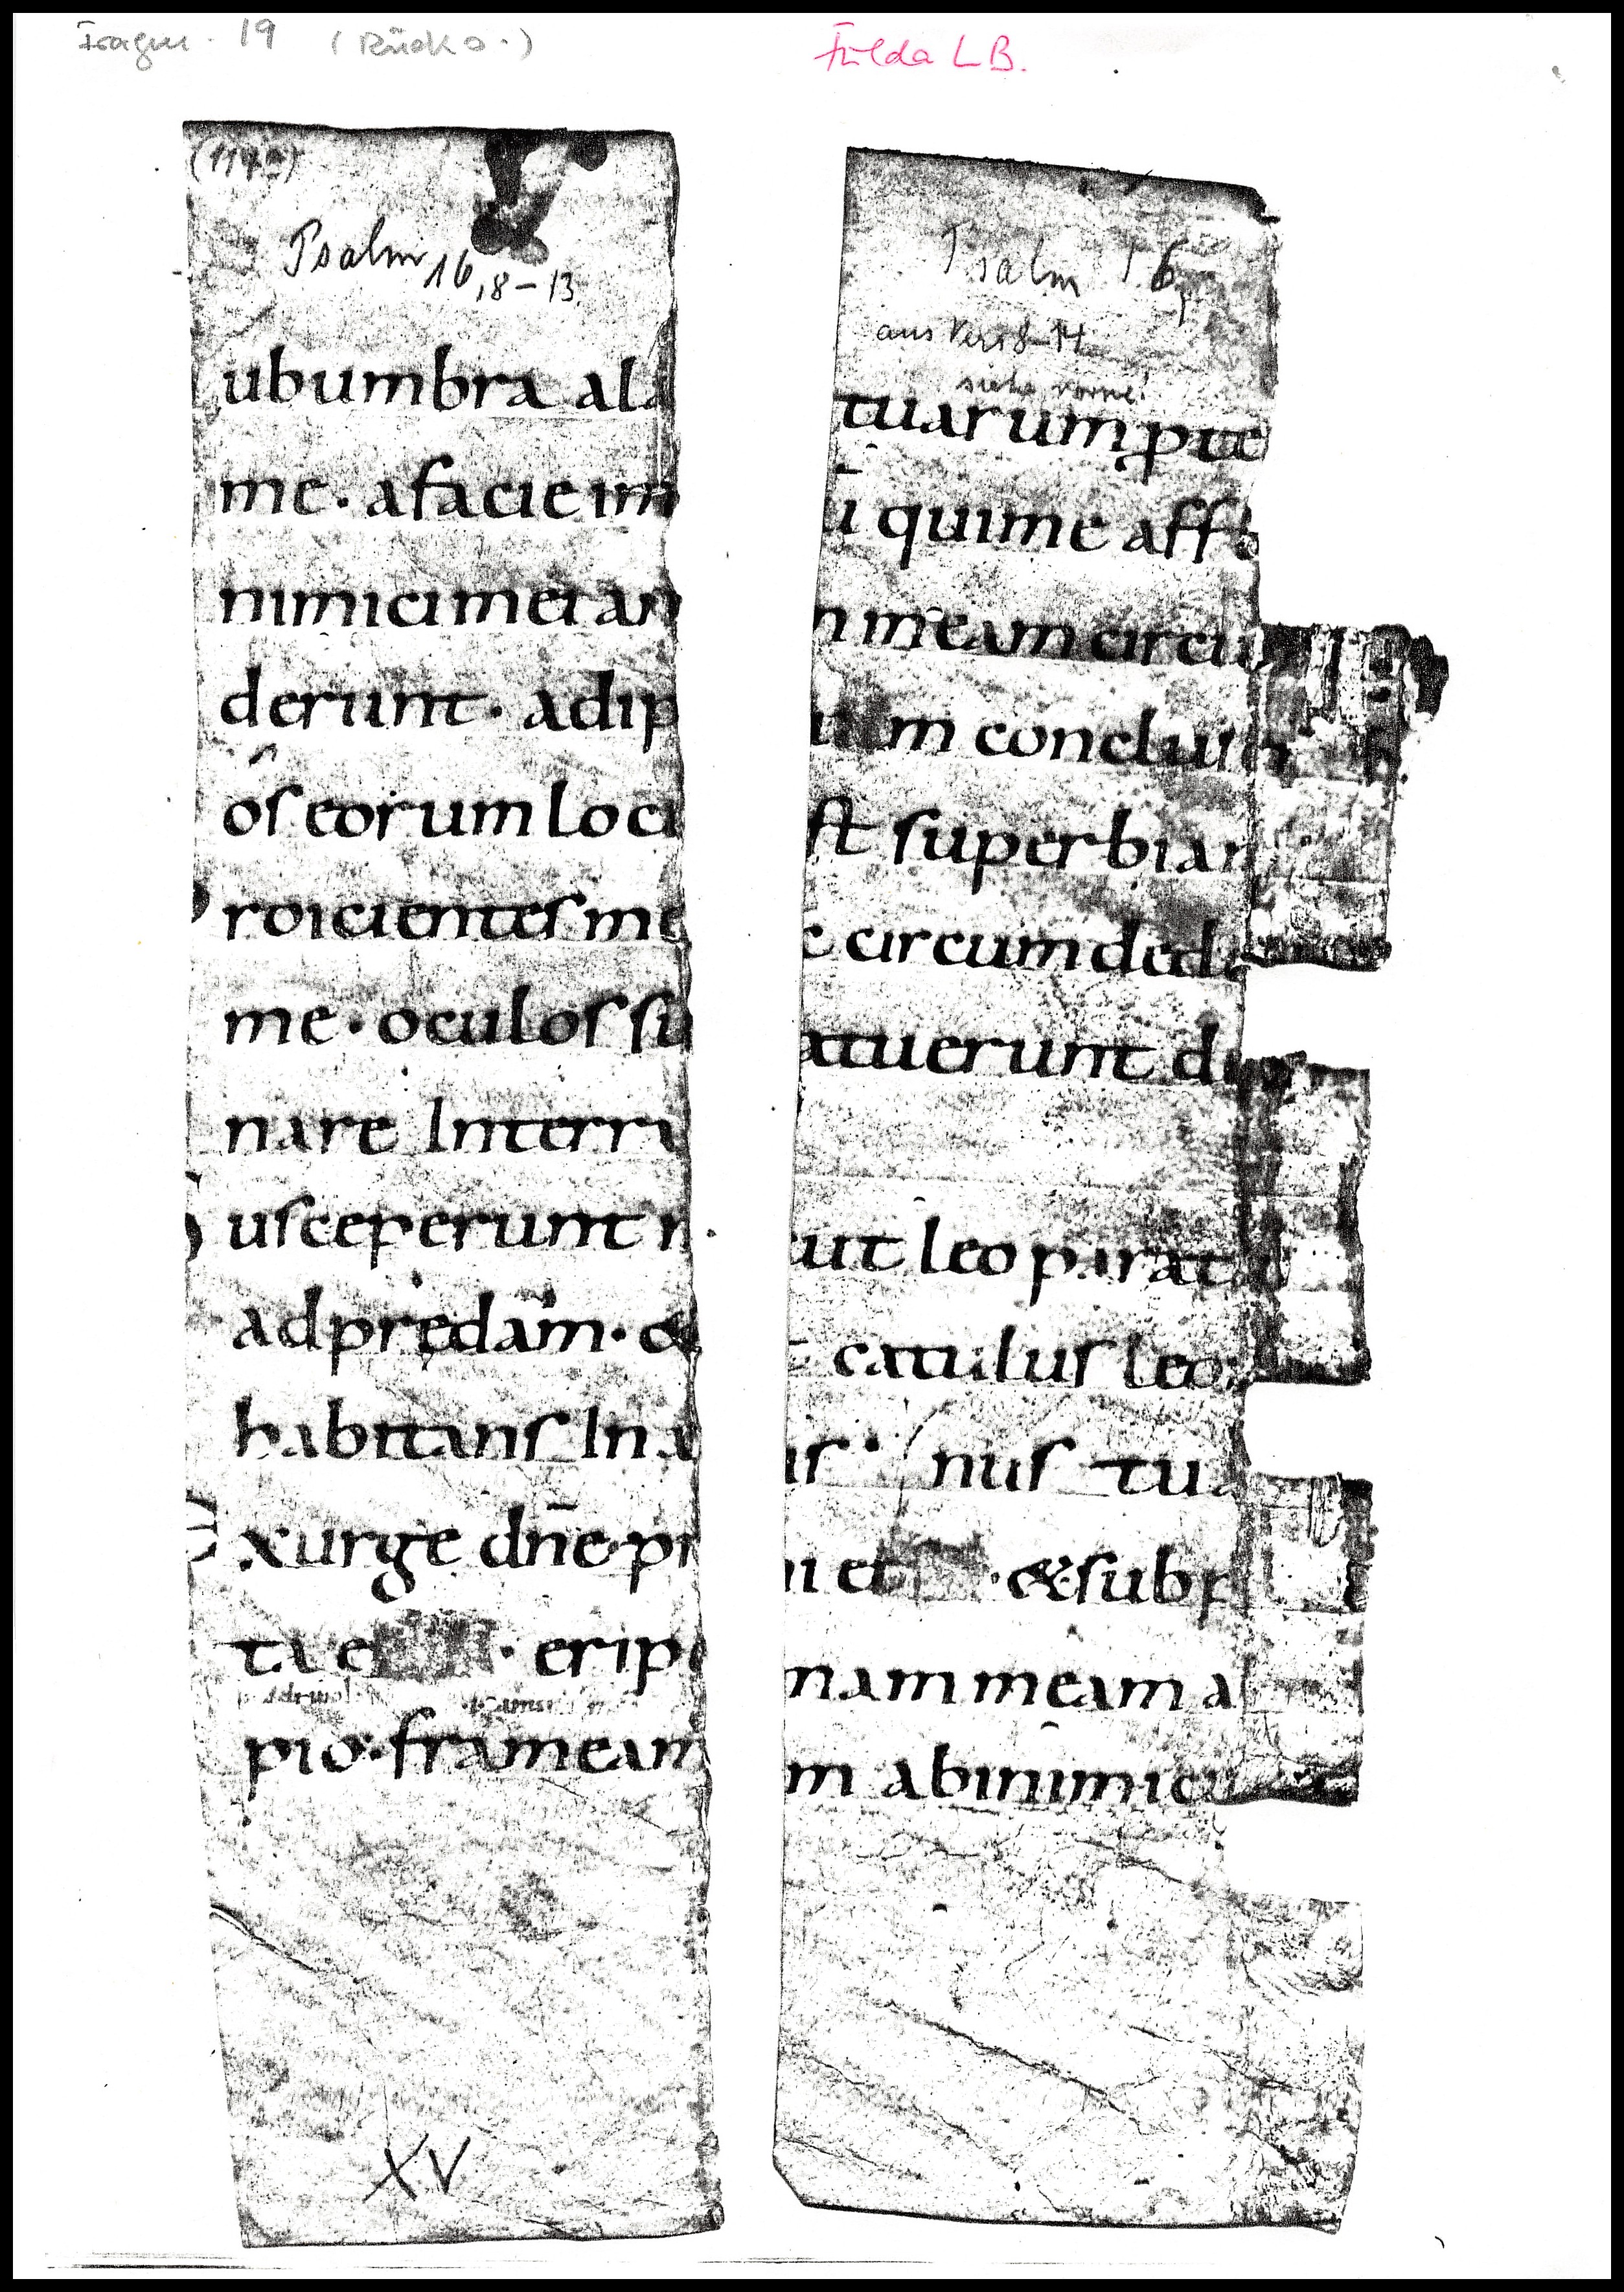 Fragm. 19 (Rücks.)
Fulda LB.
Psalm 16,8-13
ubumbra ala
me. afacieim
nimicimei an
derunt. adip
os eorum locu
roicientes me
me. oculos su
nare Interra
usceperunt m
adprędam. &
habitans In a
xurge dn̄e pr
ta e . erip
pio. frameam
XV
Psalm 16,
aus Vers 8-14
siehe vorne!
tuarum prote
ū quime affl
n meam circu
m concluser
st superbiam
c circumded
atuerunt de
cut leo parat
catulus leo
is nus tua
ni et . & subp
mam meam a
m abinimicis